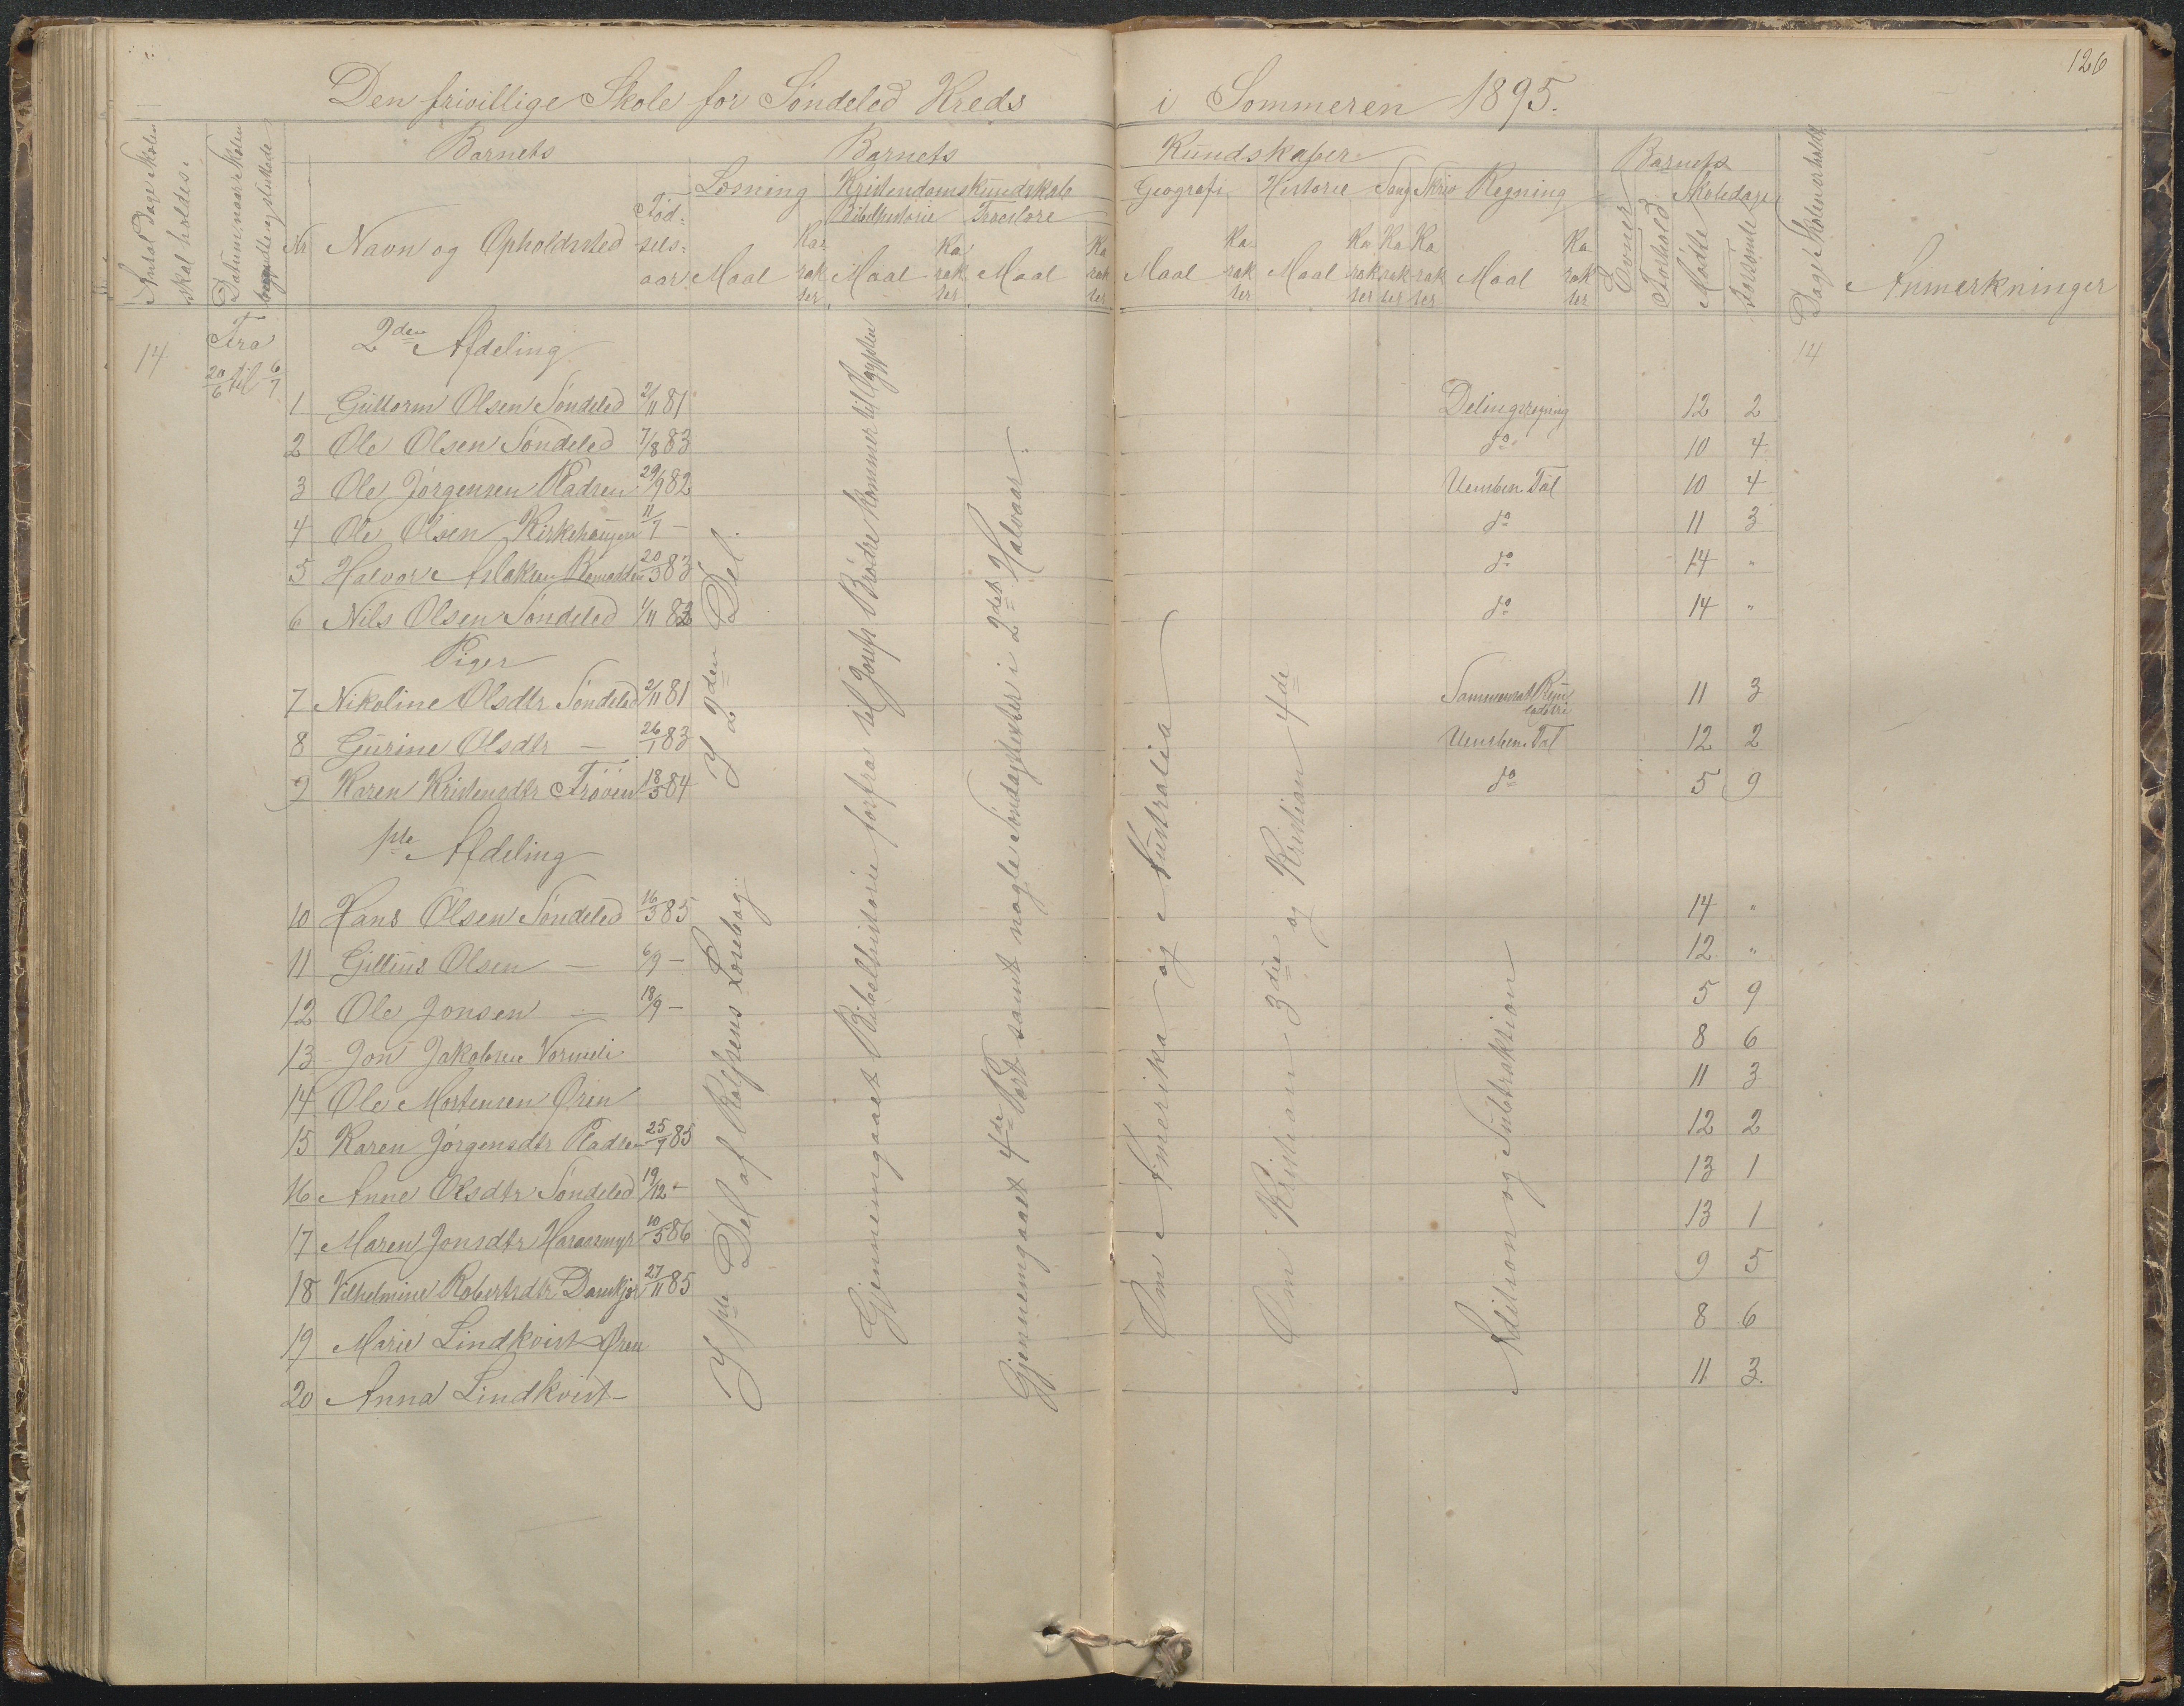 126
Den frivillige Skole for Söndeled Kreds i Sommeren 1895.
Antal Dage Skolen skal holdes.
Datum, naar Skolen begyndte og sluttede
Barnets
Barnets
Kundskaber
Barnets
Dage Skolen er holdt
Nr
Navn og Opholdssted
Fødselsaar
Læsning
Kristendomskundskab
Bibelhistorie
Troeslære
Geografi
Historie
Sang
Skriv
Regning
Evner
Forhold
Skoledage
Mødte
Forsömte
Anmerkninger
Maal Karakter Maal Karakter Maal Karakter
Maal Karakter Maal Karakter Karakter Karakter Maal Karakter
14 Fra 20/6 til 6/7
2den Afdeling
14
1 Guttorm Olsen Söndeled 2/11 81 Delingsregning 12 2
2 Ole Olsen Söndeled 7/8 83 do 10 4
3 Ole Jörgensen Pladsen 29/9 82 Uensben. Tal 10 4
4 Ole Olsen Kirkehaugen 11/7 — do 11 3
5 Halvor Aslaksen 20/3 83 do 14 "
6 Nils Olsen Söndeled 1/11 82 do 14 "
Piger
7 Nikoline Olsdtr Söndeled 2/11 81 Sammensat 11 3
8 Gurine Olsdtr — 26/1 83 Uensben. Tal 12 2
9 Karen Kristensdtr Tröven 18/5 84 do 5 9
1ste Afdeling
10 Hans Olsen Söndeled 16/3 85 14 "
11 Gittius Olsen — 6/9 — 12 "
12 Ole Jonsen — 18/9 — 5 9
13 Jon Jakobsen Vormeli 8 6
14 Ole Mortensen Ören 11 3
15 Karen Jörgensdtr Pladsen 25/9 85 12 2
16 Anne Olsdtr Söndeled 19/12 — 13 1
17 Maren Jonsdtr Haraasmyr 10/5 86 13 1
18 Vilhelmine Robertsdtr 27/11 85 9 5
19 Marie Lindkvist Ören 8 6
20 Anna Lindkvist — 11 3.
I 1ste Del af Rolfsens Læsebog.
I 2den Del.
Gjennemgaaet Bibelhistorie forfra til Josefs Brødre kommer til Egypten
Gjennemgaaet 4de Part samt nogle Søndagstexter i 2det Halvaar.
Om Amerika og Australia
Om Kristian 3die og Kristian 4de
Adition og Subtraktion